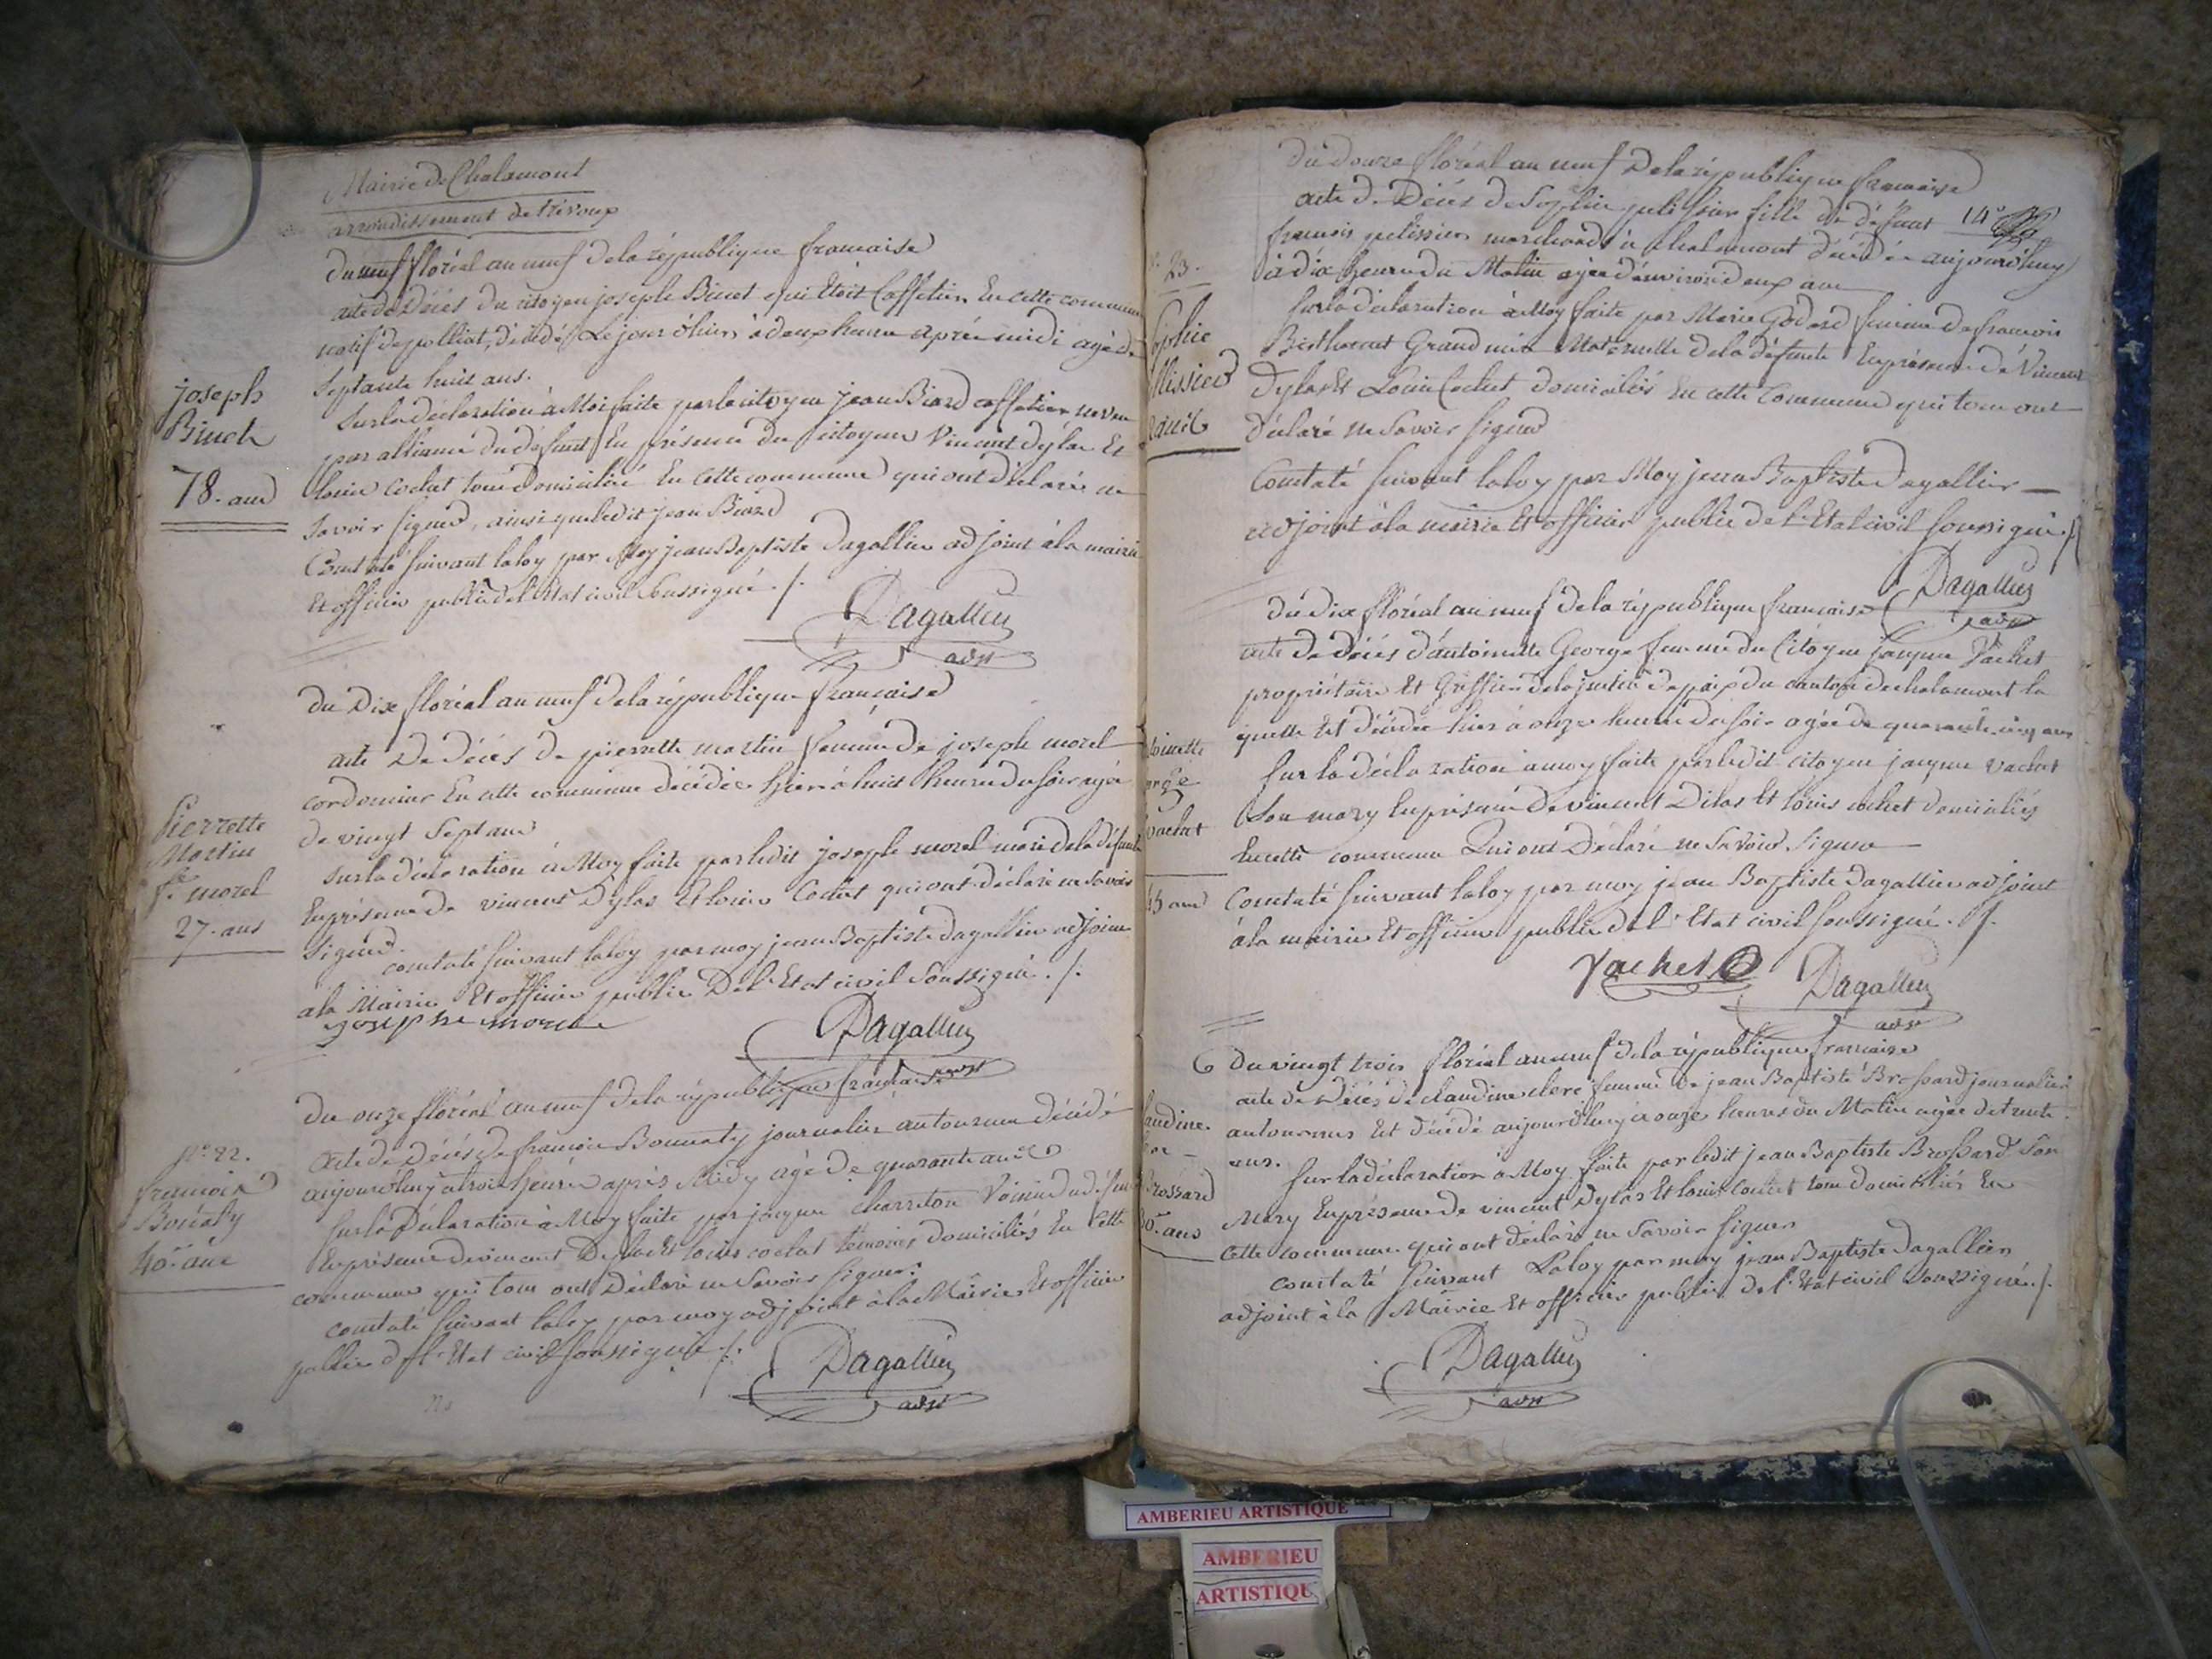 Mairie de Chalamont
arrondissement de trévoux
Du neuf floréal an neuf dela république francaise
acte de Décés du citoyen joseph Binet qui Etoit Caffetier En cette commune
natif de polliat, décédé Le jour d'hier à deux heure aprés midi agé de
Septante huit ans.
joseph
Binet
78. ans
Sur la déclaration à Moi faite par le citoyen jean Biard caffetier neveu
par alliance du défunt En présence du citoyen Vincent Dylas Et
louis cochet tous Domiciliés En cette commune qui ont déclaré ne
Savoir signer, ainsi que ledit jean Biard
Constaté suivant la loy par Moy jean Baptiste Dagallier adjoint à la mairie
Et officier public de l'Etat civil Soussigné ./.
Dagallier
adjt
du Dix floréal an neuf de la république francaise
acte De Décés de pierrette martin femme de joseph morel
cordonnier En cette commune décédée hier à huit heure du soir agée
de vingt Sept ans
Pierrette
Martin
fe. morel
27. ans
sur la déclaration à Moy faite par ledit joseph morel mari dela défunte
En présence de vincent Dylas Et louis Cochet qui ont déclaré ne savoir
signer.
constaté suivant la loy par moy jean Baptiste Dagallier adjoint
a la Mairie Et officier public De l'Etat civil Soussigné ./.
joseph morel
Dagallier
adjt
Du onze floréal an neuf de la république francaise
acte de Décés de francois Bonnaty journalier décédé
aujourdhuy à trois heures aprés Midy agé de quarante ans
No. 22.
francois
Bonaty
40. ans
Sur la Déclaration à Moy faite par jacque Charreton Voisin du défunt
En présence de vincent Dylas Et louis cochet témoins domiciliés En cette
commune qui tous ont Déclaré ne Savoir signer.
constaté suivant la loy par moy adjoint à la Mairie Et officier
public de l'Etat civil soussigné ./.
Dagallier
adjt
Du douze floréal an neuf De la république francaise
acte De Décés de Sophie pelissier fille de défunt
14e
francois pelissier marchand à chalamont décédée aujourdhuy
à dix heure du Matin agée d'environ deux ans
23.
Sophie
Sur la déclaration à Moy faite par Marie Godard femme de francois
Berthouat Grand mère Maternelle de la défunte En présence de Vincent
Dylas Et Louis Cochet domiciliés En cette Commune qui tous ont
déclaré ne Savoir signer
Constaté suivant la loy par Moy jean Baptiste Dagallier
adjoint à la mairie Et officier public de l'Etat civil soussigné ./.
Dagallier
adjt
du dix floréal an neuf de la république francaise
acte de décés d'antoinette George femme du Citoyen jacque Vachet
propriétaire Et Greffier de la justice de paix du canton de chalamont la
quelle Est décédée hier à onze heure du soir agée de quarante cinq ans
toinette
orge
vachet
45 ans
Sur la déclaration à moy faite par ledit citoyen jacque vachet
Son mary En présence de vincent Dilas Et louis cochet domiciliés
En cette commune Qui ont Déclaré ne Savoir Signer
Constaté suivant la loy par moy jean Baptiste Dagallier adjoint
à la mairie Et officier public de l'Etat civil soussigné ./.
Vachet
Dagallier
adjt
Du vingt trois floréal an neuf de la république francaise
acte de Décés de claudine clere femme de jean Baptiste Brossard journalier
Est décédé aujourdhuy à onze heures du Matin agée de trente
ans.
laudine
Brossard
30. ans
Sur la déclaration à Moy faite par ledit jean Baptiste Brossard Son
Mary En présence de vincent Dylas Et louis cochet tous domiciliés En
cette commune qui ont déclaré ne Savoir Signer
constaté suivant La loy par moy jean Baptiste Dagallier
adjoint à la Mairie Et officier public de l'Etat civil soussigné ./.
Dagallier
adjt
AMBERIEU ARTISTIQUE
AMBERIEU
ARTISTIQU